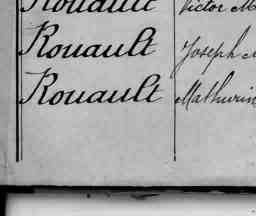 Rouault Victor M
Rouault Joseph
Rouault Mathurin